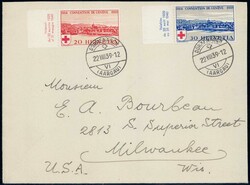 1864 CONVENTION DE GENÈVE 1939
20 HELVETIA
1864 CONVENTION DE GENÈVE 1939
30 HELVETIA
22 VIII 39-12
VI
(AARGAU)
22 VIII 39-12
VI
(AARGAU)
Mr.
E. A. Bourbeau
2813 S. Superior Street
Milwaukee
U.S.A. Wis.